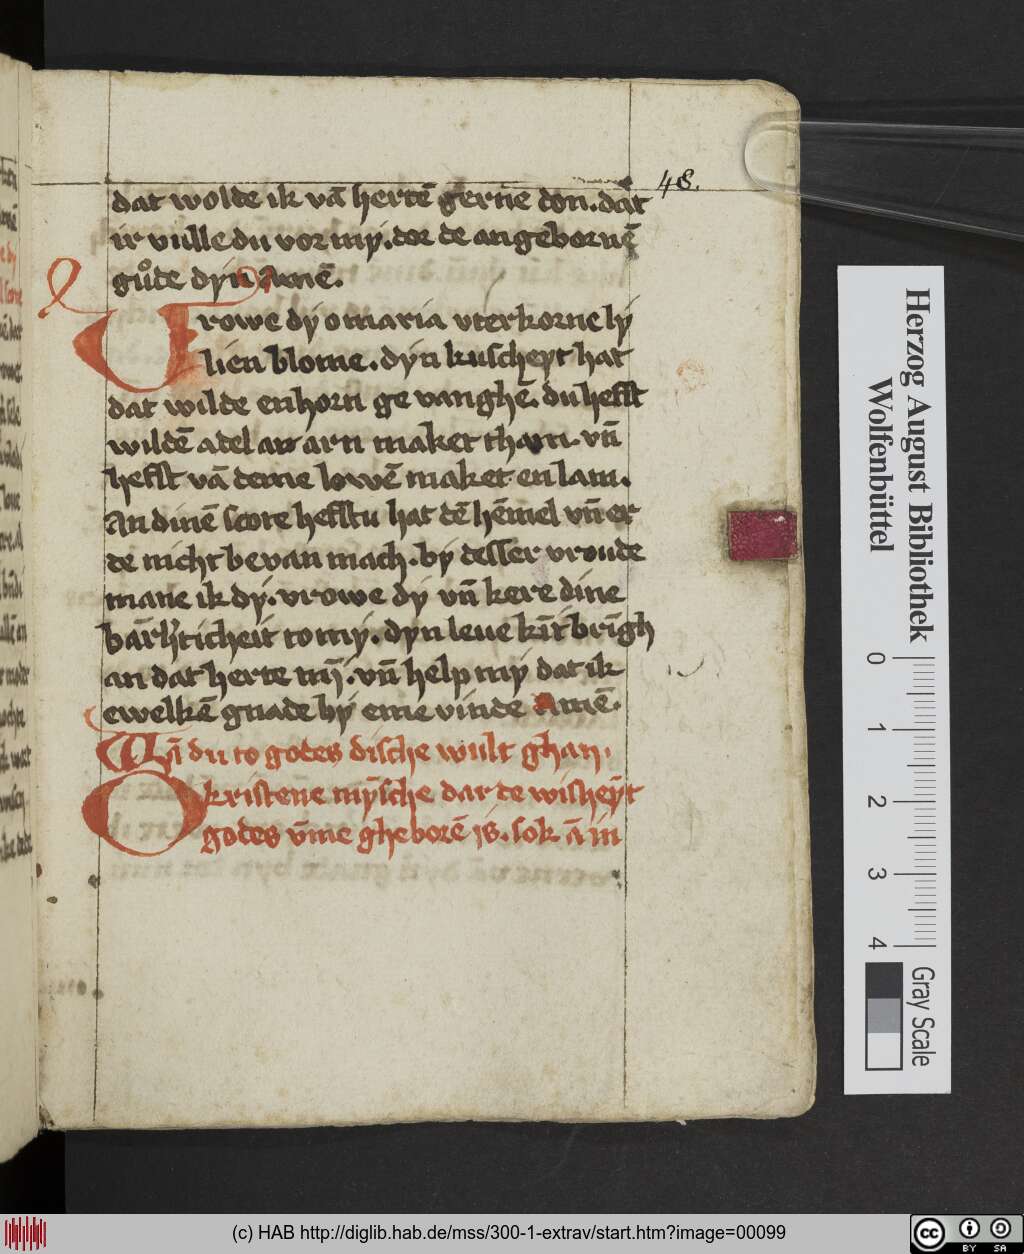 48.
dat wolde ik vā hertē gerne don. dat
ir vulle du vor mẏ. dor de angebornē
gůde dẏn Amē.
Vrowe dẏ o maria vterkorne lẏ
lien blome. dẏn kuscheyt hat
dat wilde enhorn ge vanghē. du hefft
wildē adel ar arn maket tham. vn̄
hefft vā deme lowē maket en lam.
An dinē scote hefstu hat dē hēmel vn̄ er
de nicht bevan mach. bẏ desser vroude
mane ik dẏ. vrowe dẏ vn̄ kere dine
to mẏ. dẏn leue kīt brīgh
an dat herte mī. vn̄ help mẏ dat ik
ewelkē gnade bẏ eme vinde Amē.
du to godes dische wult ghan.
O kristene mȳsche dar de wisheẏt
godes v̄me gheborē is. sok ā in
Herzog August Bibliothek
Wolfenbüttel
0 1 2 3 4
Gray Scale
(c) HAB http://diglib.hab.de/mss/300-1-extrav/start.htm?image=00099
cc BY SA